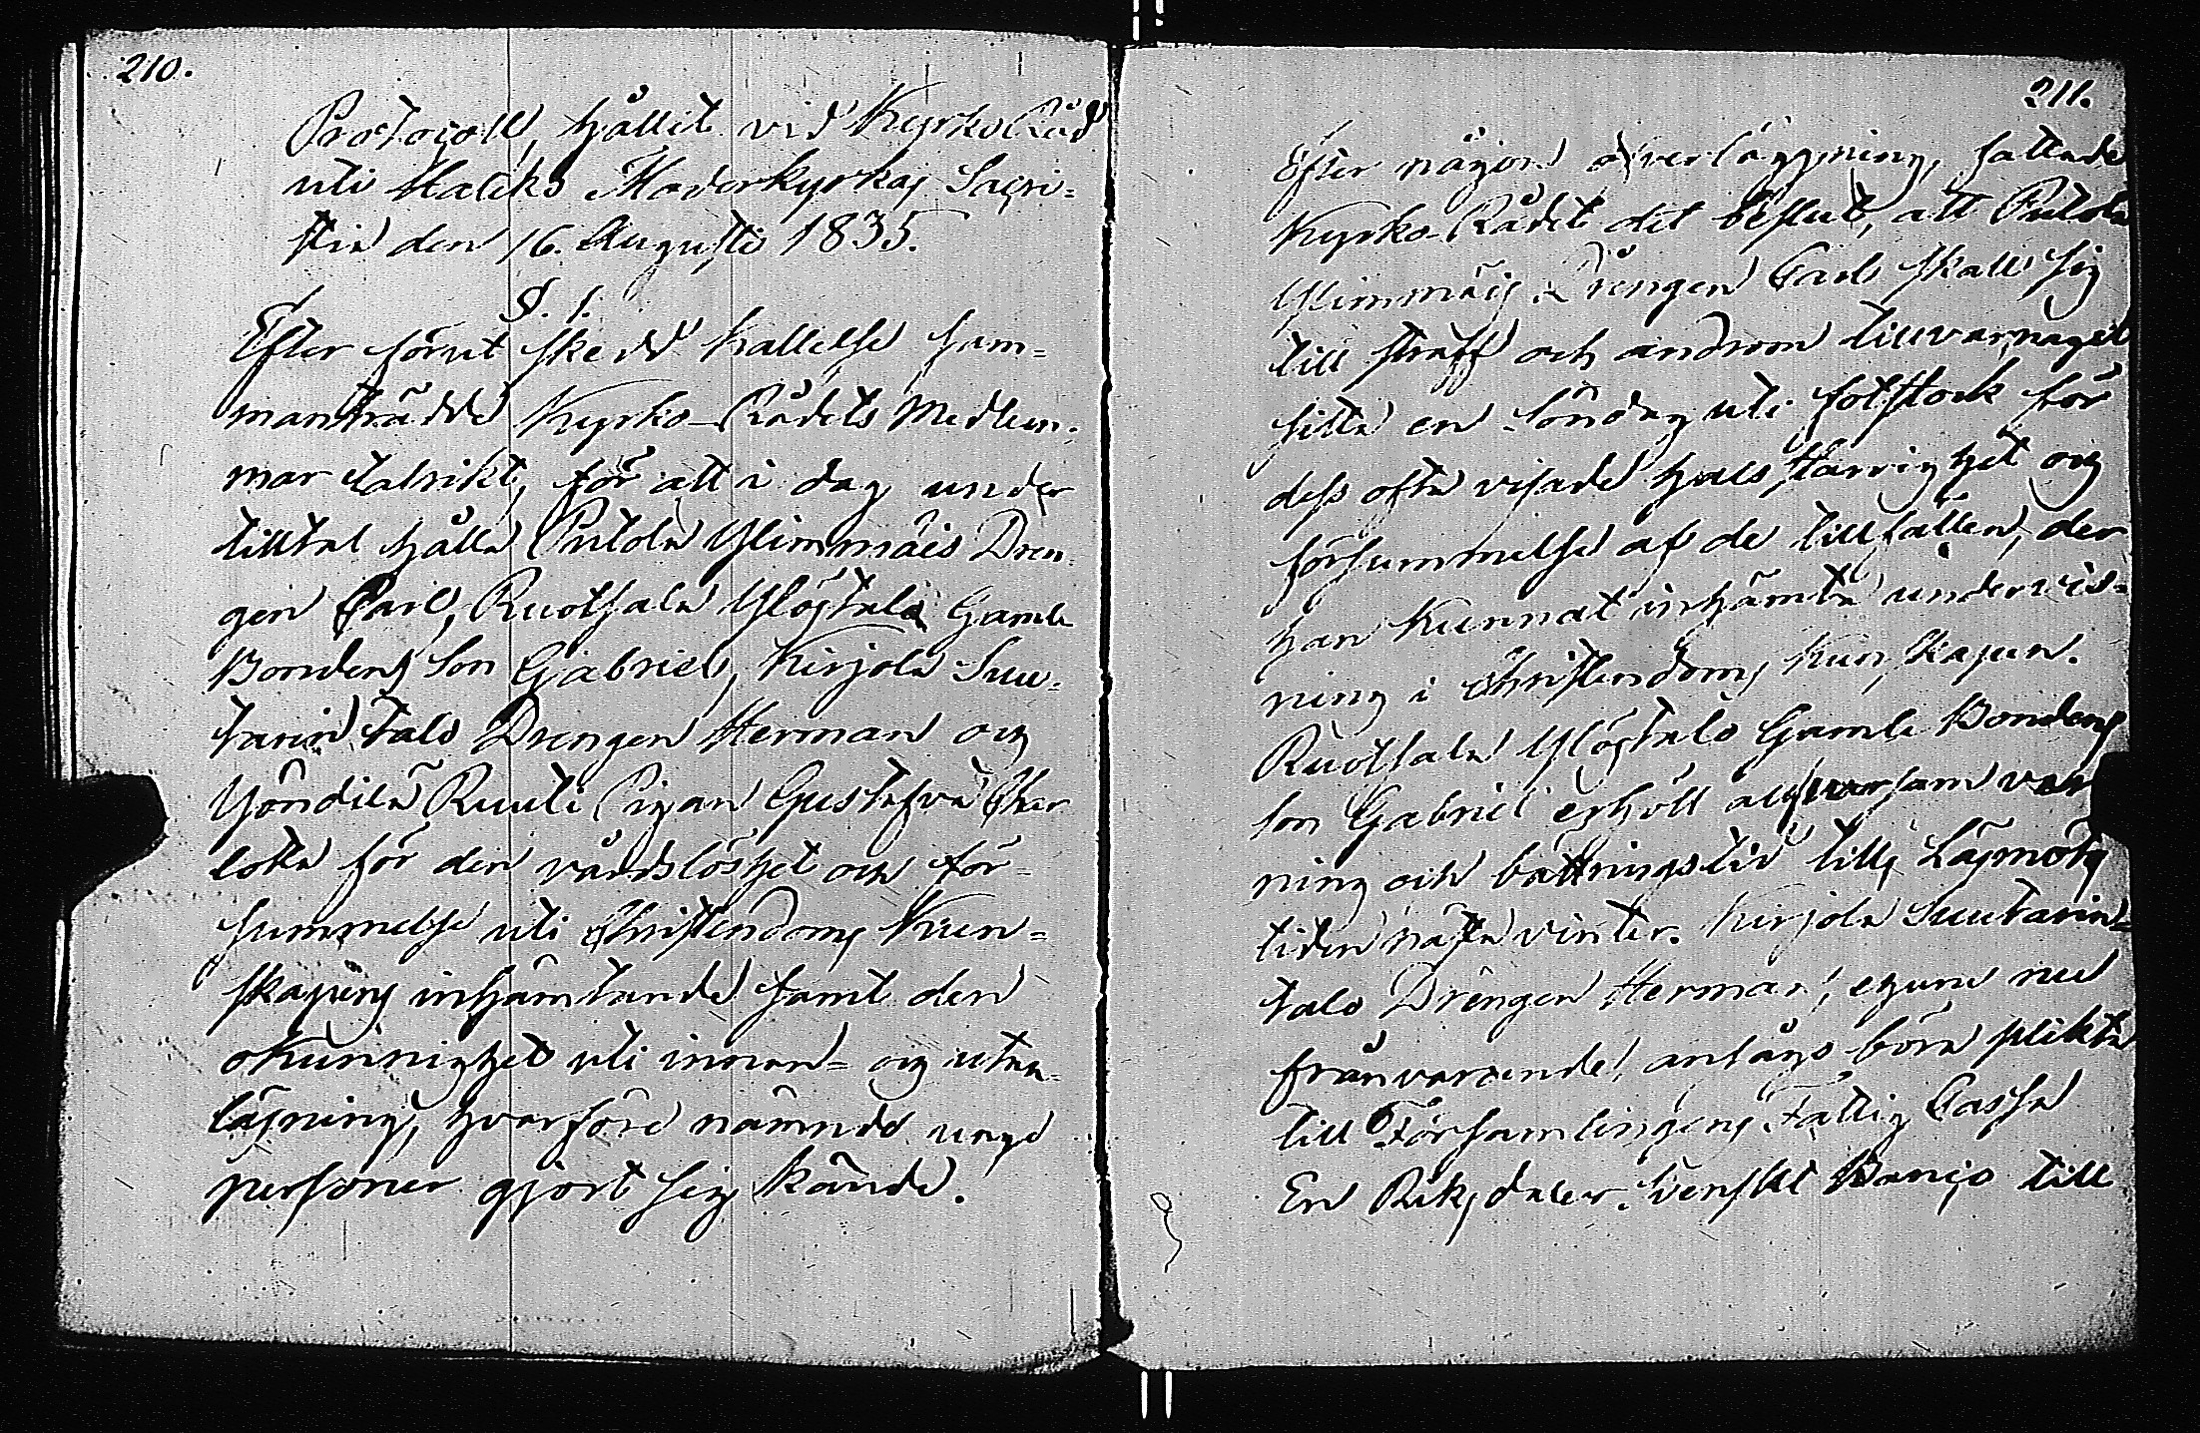 210.
Protocoll, hållit vid Kyrko Råd
uti Haliko Moderkyrkas Sacri-
stia den 16. Augusti 1835.
§. 1.
Efter förut skedd kallelse sam-
manträdde Kyrko-Rådets Medlem-
mar talrikt, för att i dag under
tilltal hålla Putola Ylimmäis Dren-
gen Carl, Ruotsala Ylöstalo Gamle
Bondens Son Gabriel, Kirjola Suu-
tarin talo Drengen Herman och
Yöndilä Ruuti Pigan Gustafva Char
lotta för den vårdslöshet och för-
summelse uti Christendoms Kun-
skapens inhämtande samt den
okunnighet uti innan- och utan-
läsning, hvarföre nämnde unge
personer gjort sig kände.
211.
Efter någon öfverläggning, fattade
Kyrko-Rådet det beslut, att Putola
Ylimmäis Drengen Carl skall sig
till straff och androm till varnagel
sitta en söndag uti fotstock för
dess ofta visade halsstarrighet och
försummelse af de tillfällen, der
han kunnat inhämta undervis-
ning i Christendoms kunskapen.
Ruotsala Ylöstalo Gamle Bondens
son Gabriel erhöll allfvarsam var
ning och bättringstid tills Läsmöts
tiden nästa vinter. Kirjola Suutarin-
talo Drengen Herman, ehuru nu
frånvarande, ansågs böra plikta
till Församlingens Fattig Cassa
En Riksdaler Svenskt Banco till